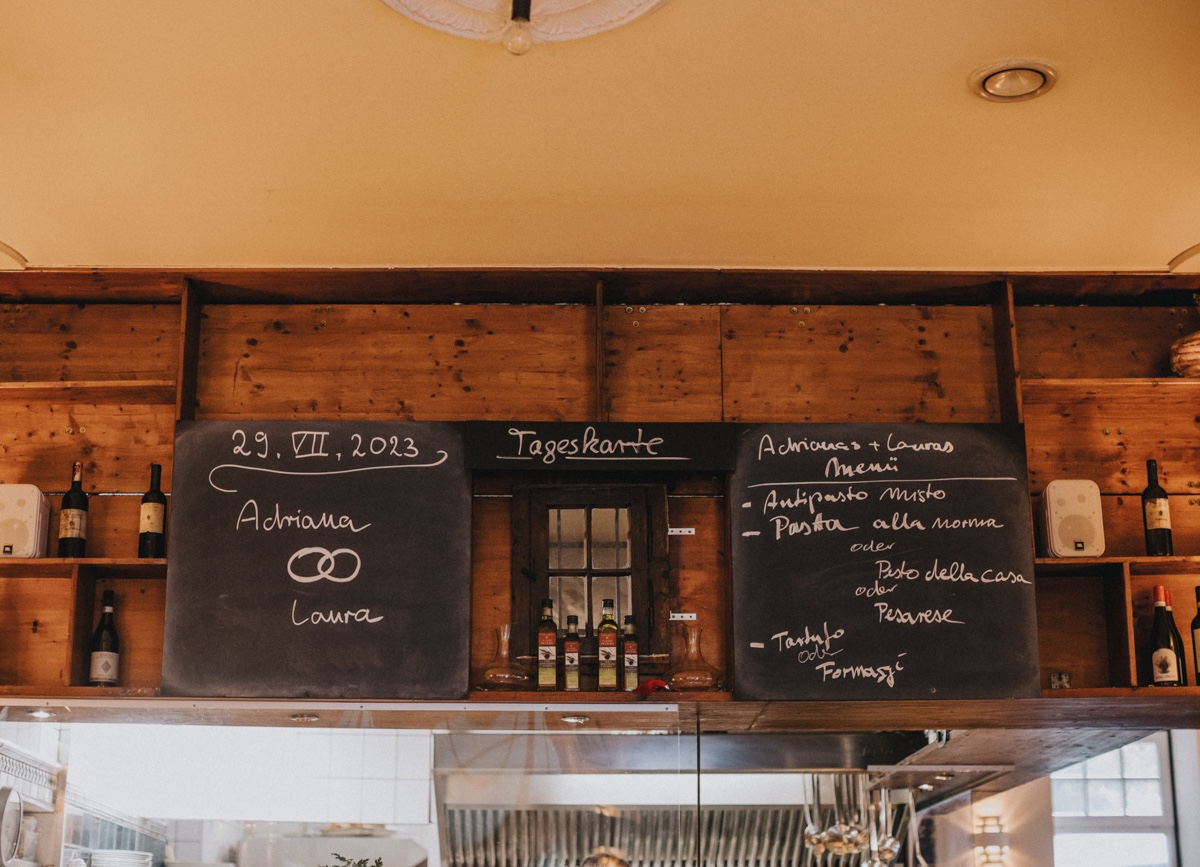 29. VII. 2023
Adriana
Laura
Tageskarte
Adrianas + Lauras
Menü
- Antipasto misto
- Pasta alla norma
oder
Pesto della casa
oder
Pesarese
- Tartufo
oder
Formaggi
JBL